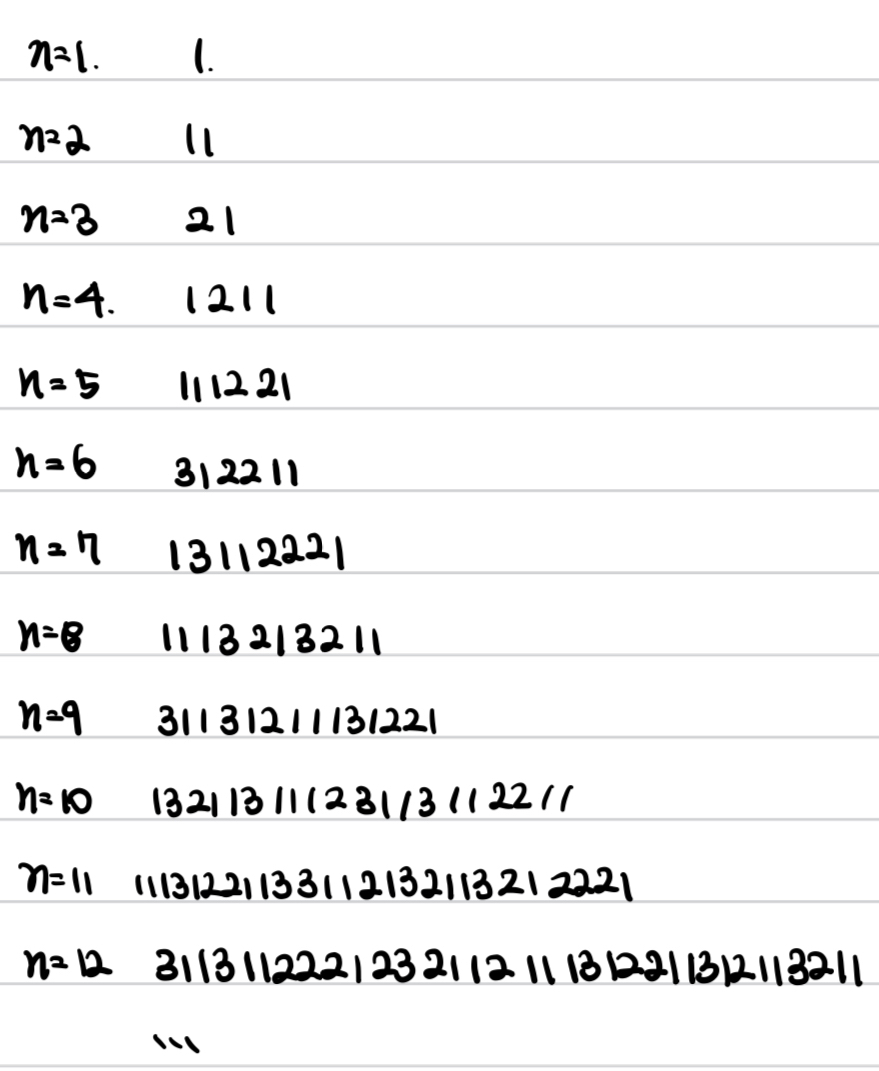 n=1. 1.
n=2 11
n=3 21
n=4. 1211
n=5 111221
n=6 312211
n=7 13112221
n=8 1113213211
n=9 31131211131221
n=10 13211311123113112211
n=11 11131221133112132113212221
n=12 3113112221232112111312211312113211
...